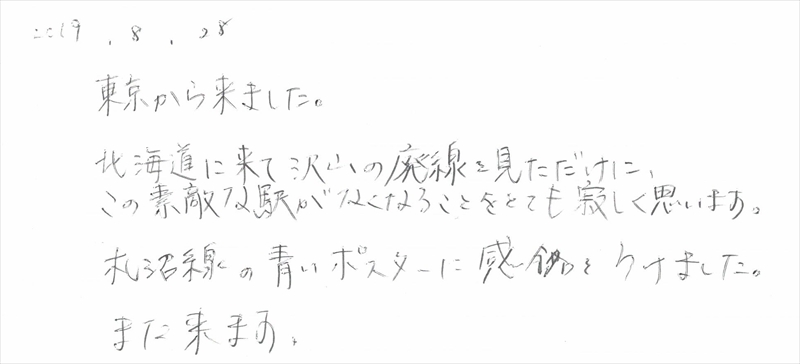 2019.8.28
東京から来ました。
北海道に来て沢山の廃線を見ただけに、
この素敵な駅がなくなることをとても寂しく思います。
札沼線の青いポスターに感銘をうけました。
また来ます。